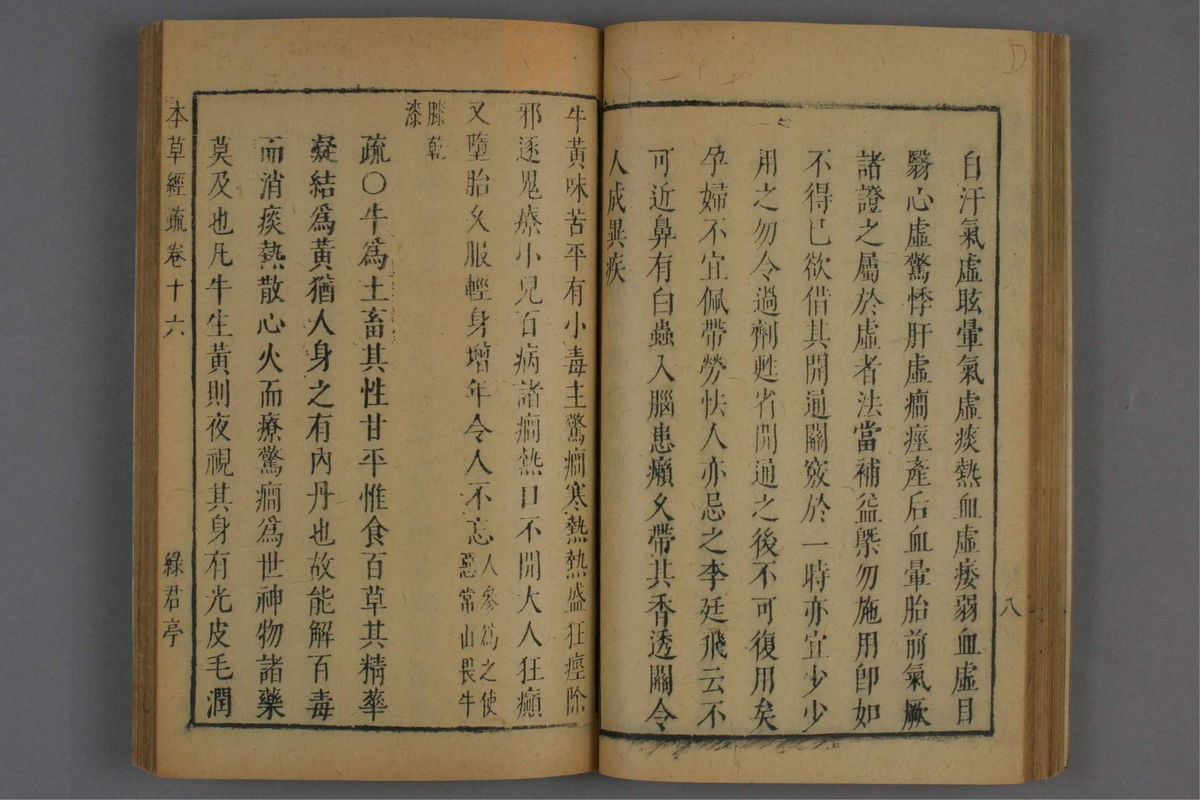 自汗氣虛眩暈氣虛痰熱血虛痿弱血虛目
翳心虛驚悸肝虛癇痙產后血暈胎前氣厥
諸證之屬於虛者法當補益槩勿施用卽如
不得已欲借其開通關竅於一時亦宜少少
用之勿令過劑甦省開通之後不可復用矣
孕婦不宜佩帶勞怯人亦忌之李廷飛云不
可近鼻有白蟲入腦患癩久帶其香透關令
人成異疾
八
牛黃味苦平有小毒主驚癇寒熱熱盛狂痙除
邪逐鬼療小兒百病諸癇熱口不開大人狂癲
又墮胎久服輕身增年令人不忘人參爲之使惡常山畏牛
膝乾漆
疏〇牛爲土畜其性甘平惟食百草其精華
凝結爲黃猶人身之有內丹也故能解百毒
而消痰熱散心火而療驚癇爲世神物諸藥
莫及也凡牛生黃則夜視其身有光皮毛潤
本草經疏卷十六
綠君亭